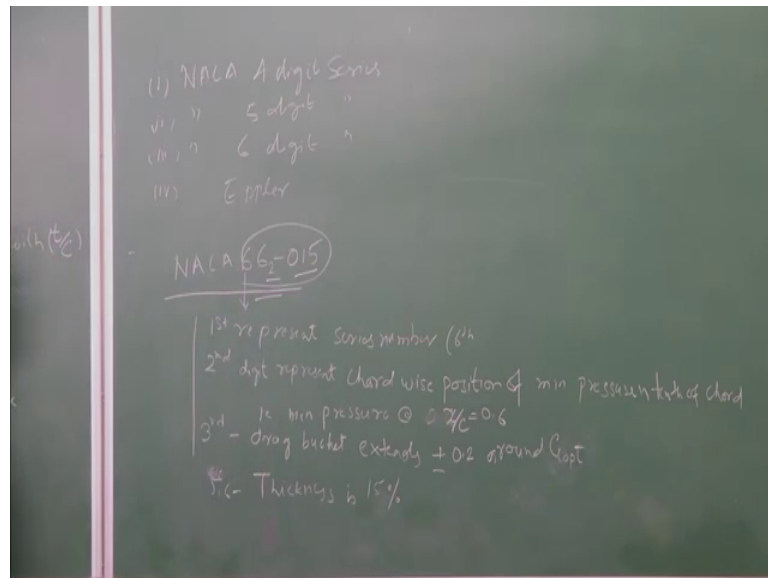 with (t/c)
(i) NACA 4 digit Series
(ii) " 5 digit "
(iii) " 6 digit "
(iv) Eppler
NACA 66₂-015
1st represent series number (6th
2nd digit represent chord wise position of min pressure in tenth of chord
ie min pressure @ x/c = 0.6
3rd - drag bucket extends ± 0.2 around Clopt
5,6 - Thickness is 15%